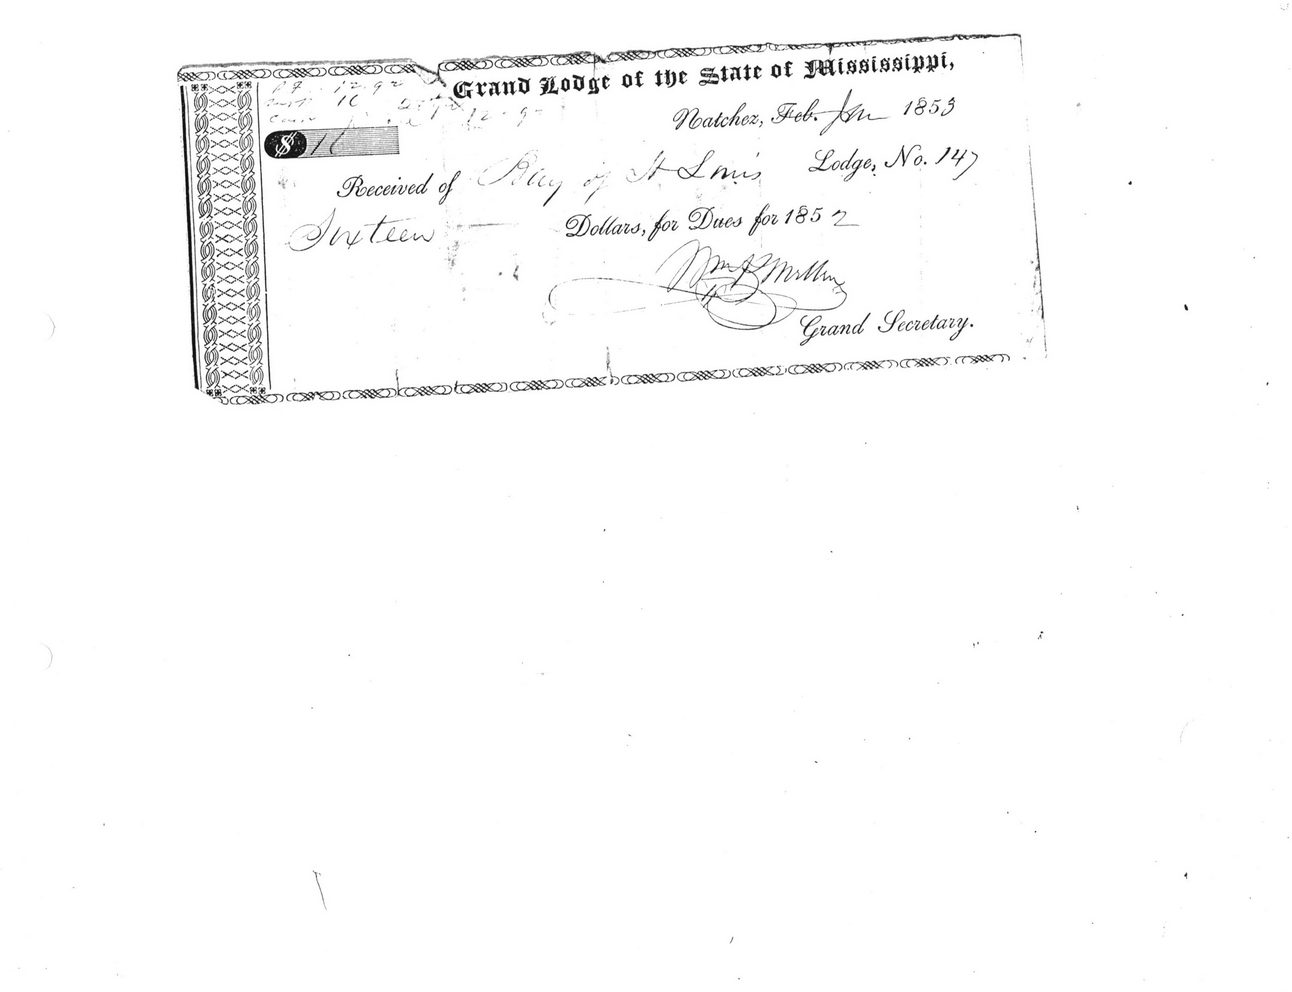 Grand Lodge of the State of Mississippi,
Natchez, Feb. Jan 1853
$ 16
Received of Bay of St Louis Lodge, No. 147
Sixteen Dollars, for Dues for 1852
Grand Secretary.